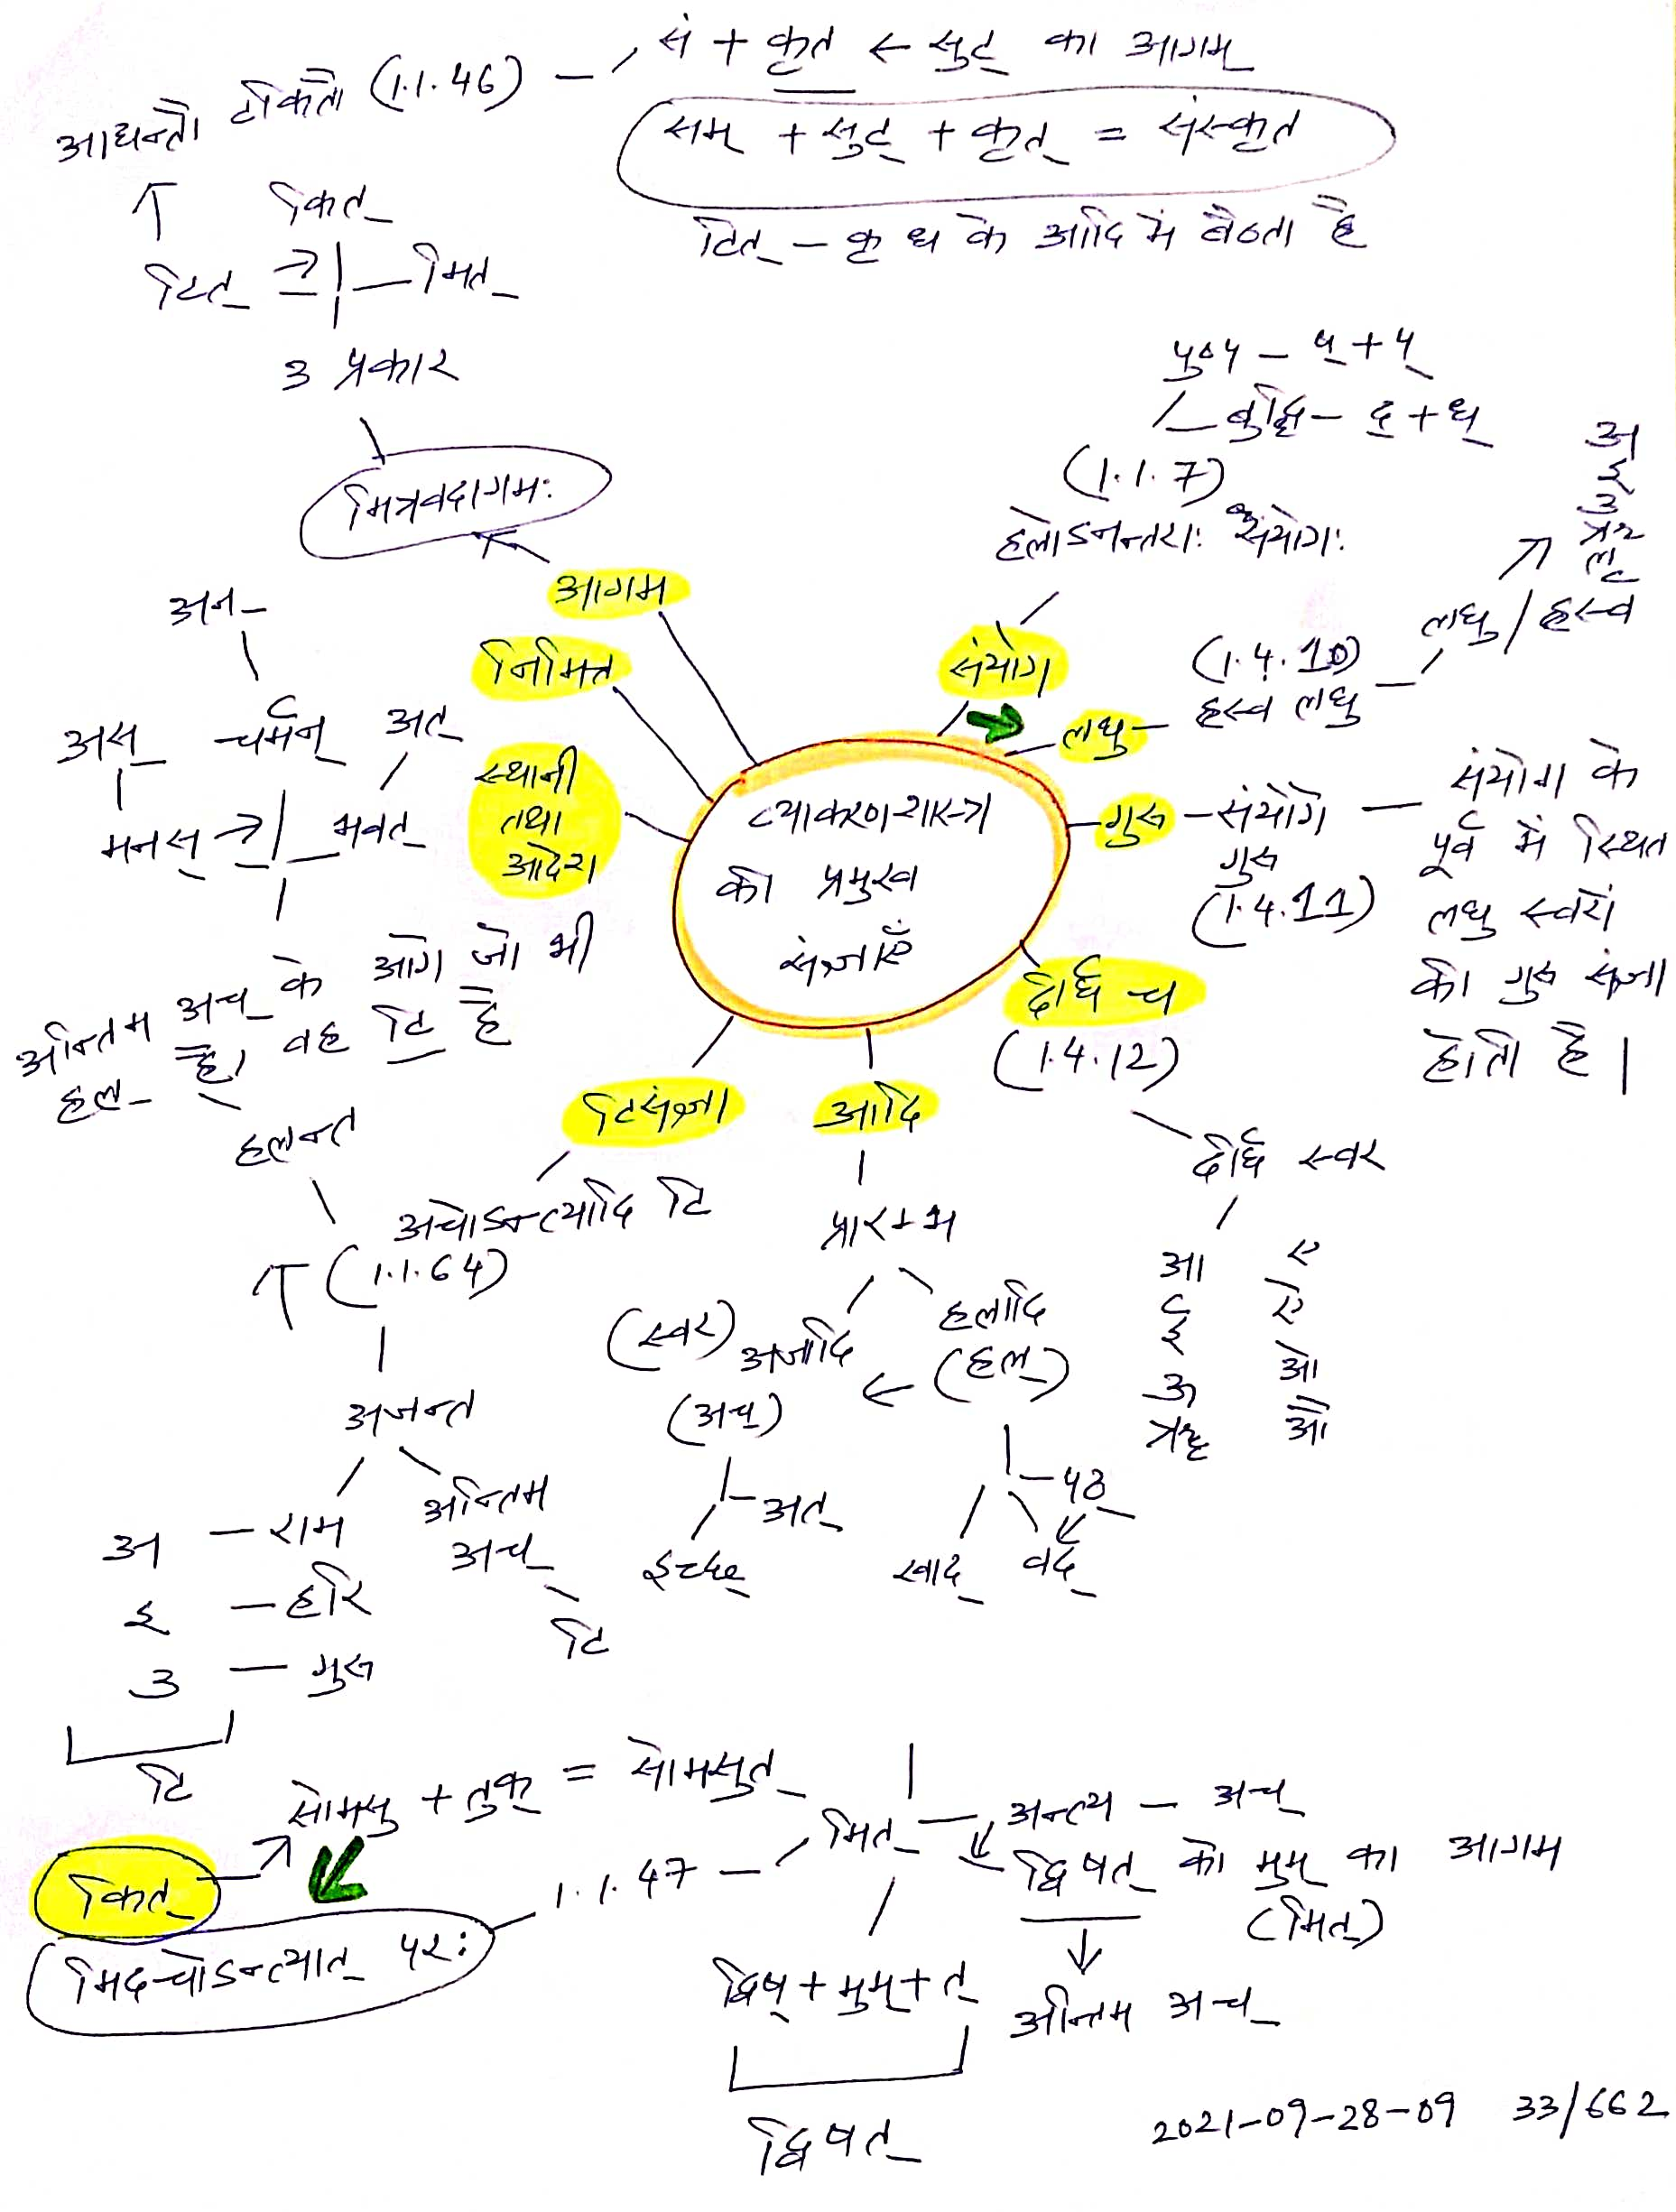 सं + कृत ← सुट् का आगम्
आद्यन्तौ टकितौ (1.1.46) –
सम् + सुट् + कृत् = संस्कृत
टित् – कृ ध के आदि में बैठता है
कित्
टित् → मित्
3 प्रकार
मित्रवदागमः
पुण्य –
बुद्धि – द् + ध्
(1.1.7)
हलोऽनन्तराः संयोगः
अ
इ
उ
ऋ
लृ
लघु / ह्रस्व
आगम
निमित
स्थानी
तथा
आदेश
संयोग
लघु – (1.4.10)
ह्रस्व लघु
गुरु – संयोगे
गुरु
(1.4.11)
संयोग के
पूर्व में स्थित
लघु स्वरों
की गुरु संज्ञा
होती है।
व्याकरणशास्त्र
की प्रमुख
संज्ञाएँ
अन्
अस् चर्मन् अत्
मनस् → भवत्
अन्तिम अच् के आगे जो भी
हल् है। वह टि है
हलन्त
टिसंज्ञा
अचोऽन्त्यादि टि
(1.1.64)
अजन्त
अ – राम
इ – हरि
उ – गुरु
टि
अन्तिम
अच्
टि
आदि
प्रारम्भ
(स्वर) अजादि ← हलादि
(अच्) (हल्)
अत्
पठ्
खाद् वद्
दीर्घ च
(1.4.12)
दीर्घ स्वर
आ ए
ई ऐ
ऊ ओ
ॠ औ
सोमसु + तुक् = सोमसुत्
कित्
मिदचोऽन्त्यात् परः
1.1.47 – मित् – अन्त्य – अच्
द्विषत् को मुम् का आगम
(मित्)
द्विष् + मुम् + त्
अन्तिम अच्
द्विषत्
2021-09-28-09 33/662